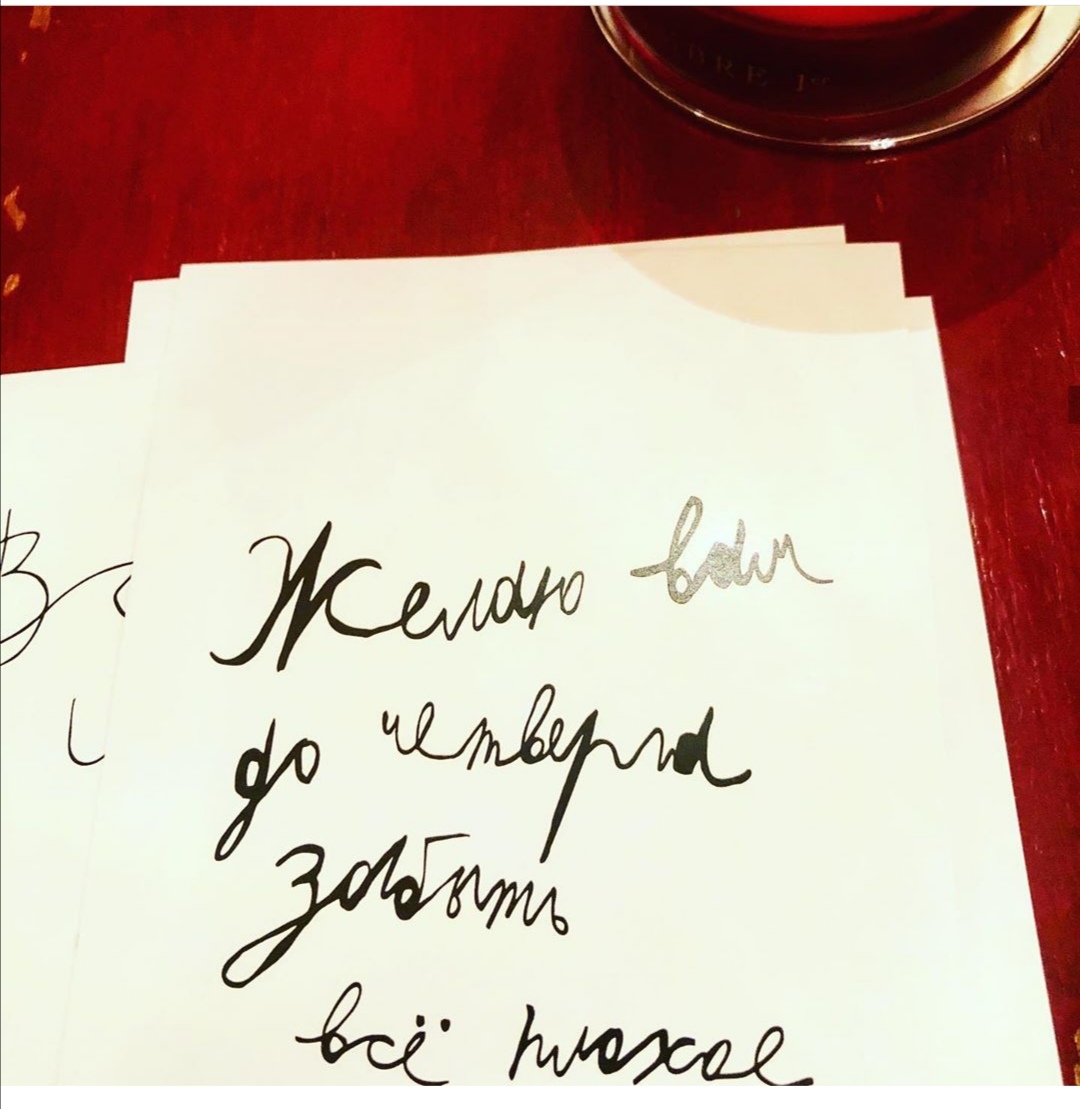 1er
Желаю вам
до четверга
забыть
всё плохое